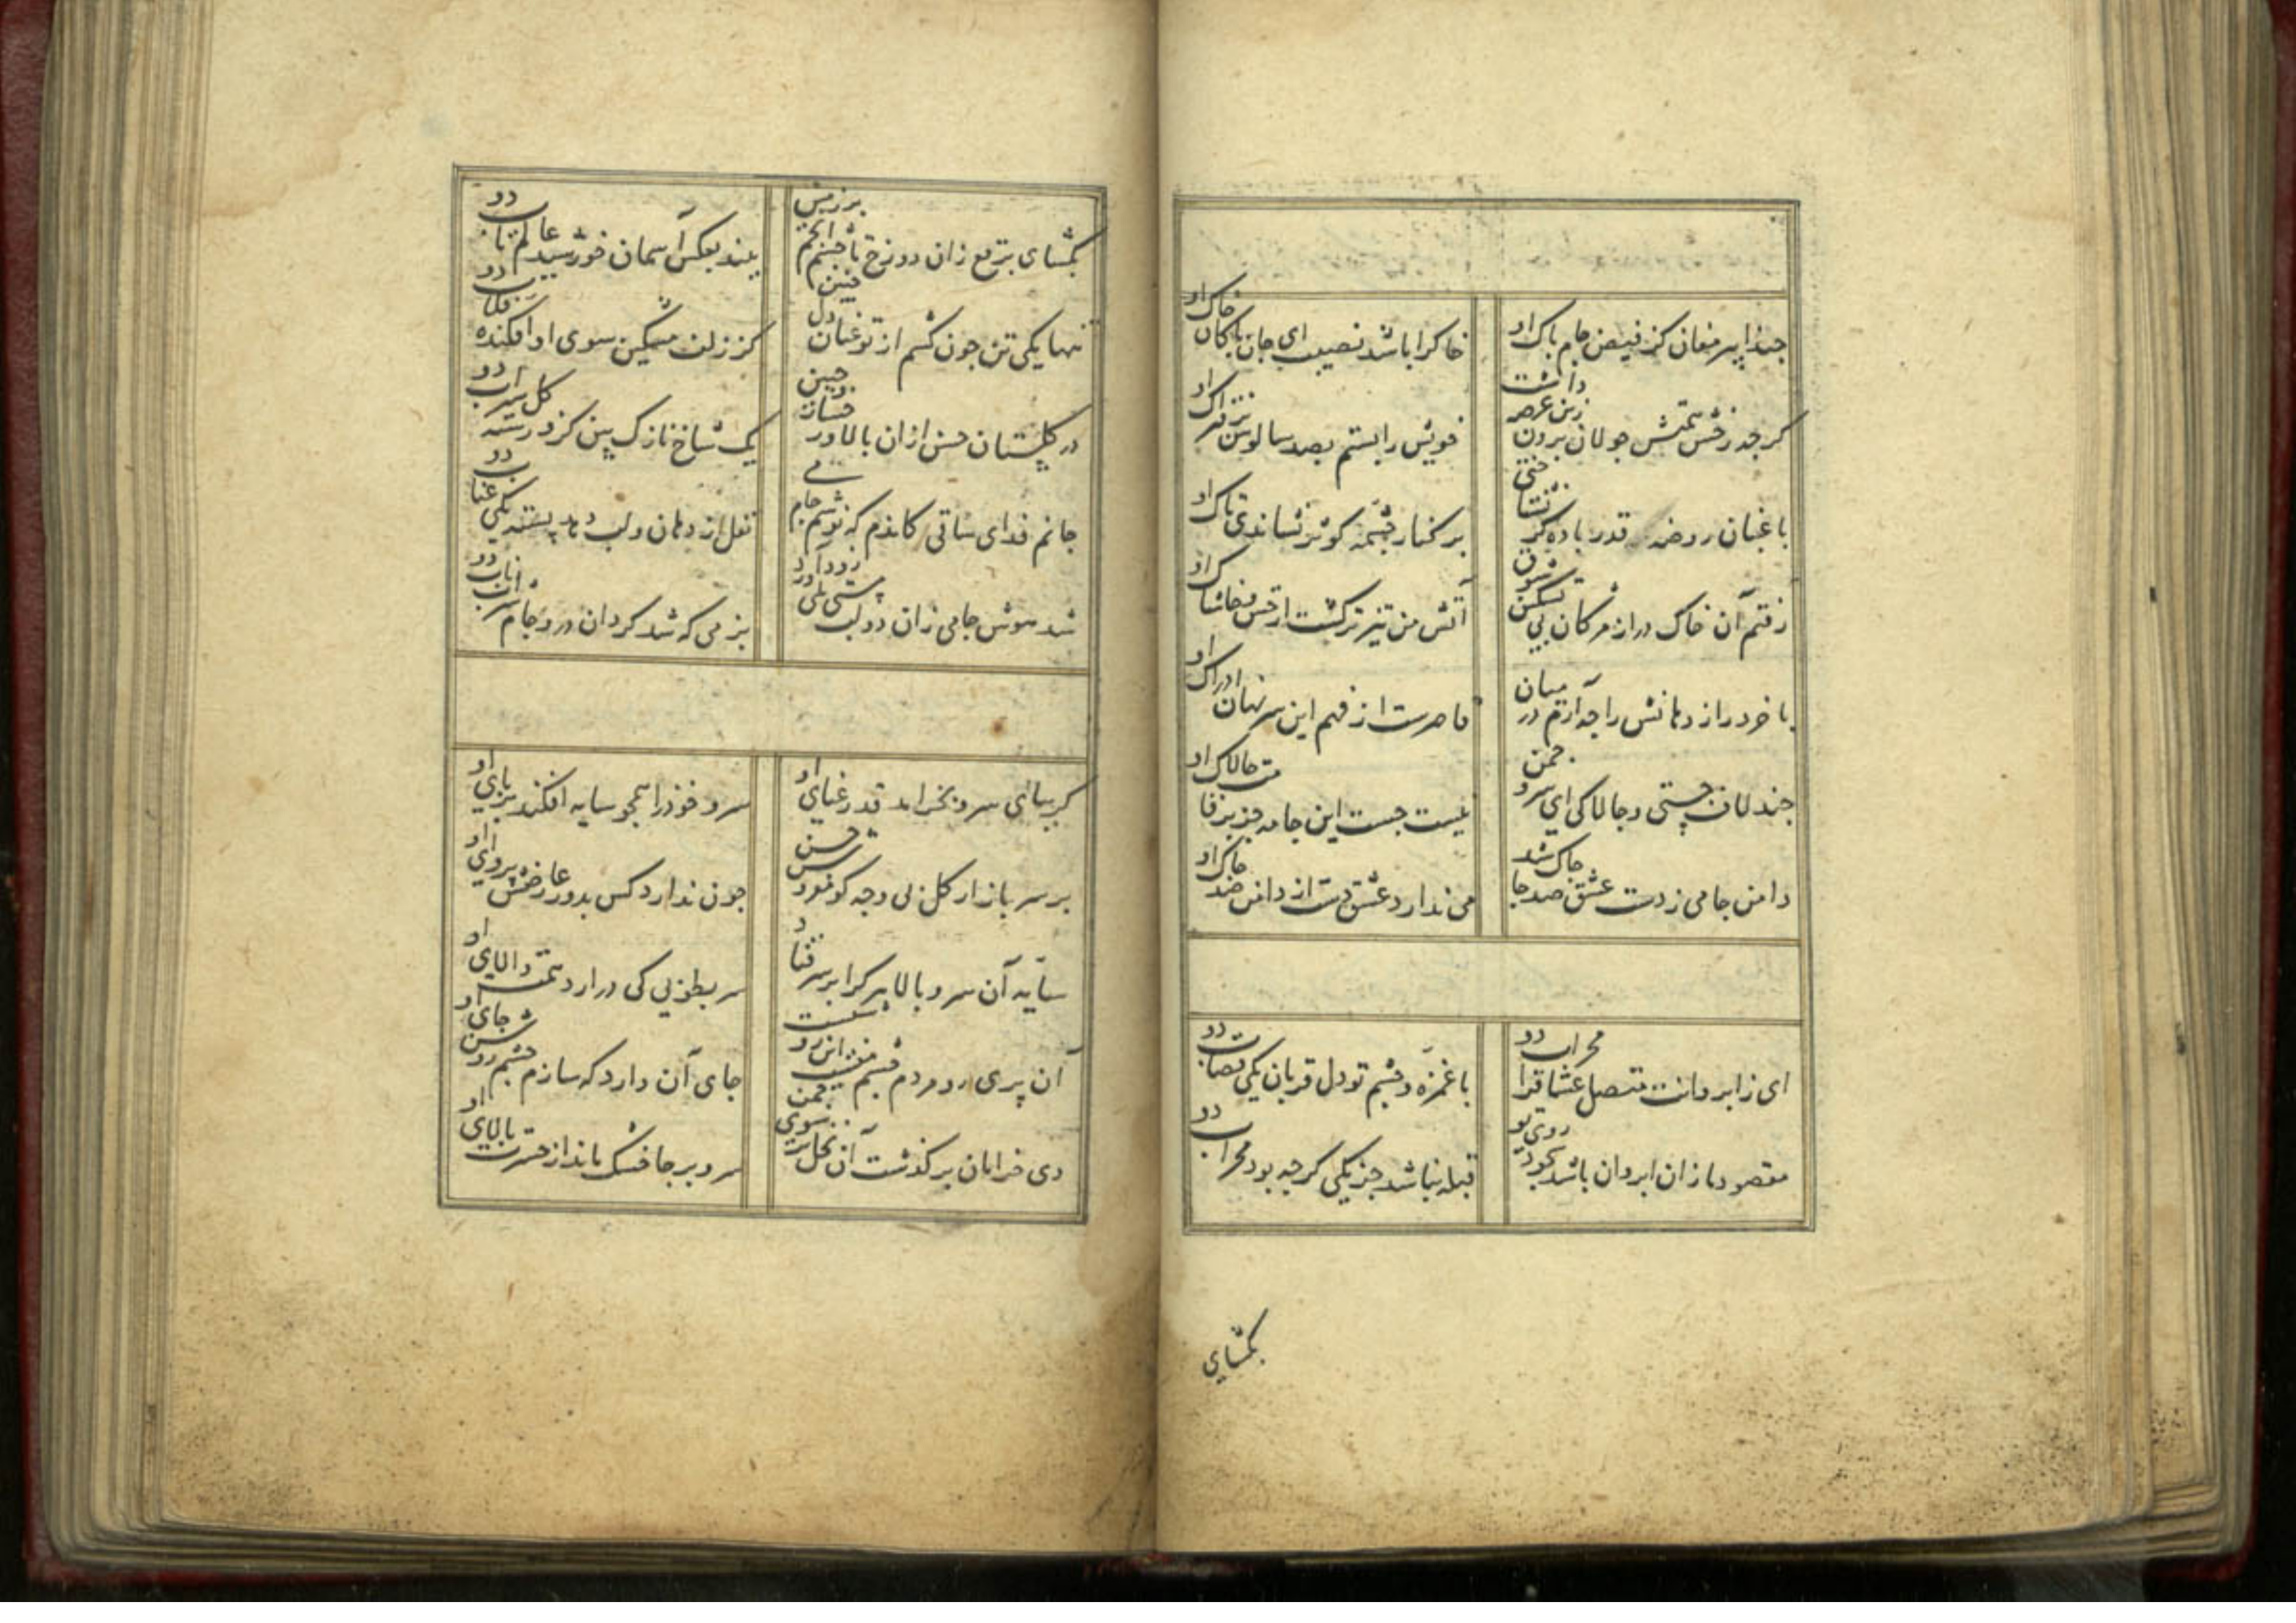 حبذا پیر مغان کز فیض جام پاک او
خاکرا باشد نصیب ای جان پاکان خاک او
کرجه رخش همتش جولان برون زین عرصه داشت
خویش را بستم بصد سالوس بر فتراک او
باغبان روضه قدر باده کر نشناختی
بر کنار چشمه کوثر نشاندی تاک او
رفتم آن خاک در از مژکان پی تسکین شوق
آتش من تیزتر کشت از خس و خاشاک او
با خرد راز دهانش را جه آرم در میان
قاصرست از فهم این سر نهان ادراک او
جند لاف جستی و جالاکی ای سرو جمن
نیست جست این جامه جز بر قامت جالاک او
دامن جامی ز دست عشق صد جا جاک شد
می ندارد عشق دست از دامن صد جاک او
ای ز ابروانت متصل عشاقرا محراب دو
با غمزه و جشم تو دل قربان یکی قصاب دو
مقصود ما زان ابروان باشد سجود روی تو
قبله نباشد جز یکی کرجه بود محراب دو
بکشای
بکشای برقع زان دو رخ تا جشم انجم بر زمین
بیند بعکس آسمان خورشید عالم تاب دو
تنها یکی تن جون کشم از تو عنان دل جنین
کز زلف مشکین سوی او افکنده قلاب دو
در کلستان حسن ازان بالا و رخسار و جبین
یک شاخ نازک بین کزو رسته کل سیراب دو
جانم فدای ساقی کاندم که نوشم جام می
نقل از دهان و لب دهد پسته یکی عناب دو
شد هوش جامی زان دو لب مستی بلی زود آورد
بزمی که شد کردان درو جام شراب ناب دو
کر بباغ ای سرو بخرامد قد رعنای او
سرو خود را همجو سایه افکند بر پای او
بر سر بازار کل بی وجه کو مفروش حسن
جون ندارد کس بدور عارضش پروای او
سایه آن سرو بالا بر کرا بر سر فتاد
سر بطوبی کی درارد همت والای او
آن پری رو مردم جشم منست این رو
جای آن دارد که سازم جشم روشن جای او
دی خرامان بر کذشت آن نخل تر سوی جمن
سرو بر جا خشک ماند از حسرت بالای او